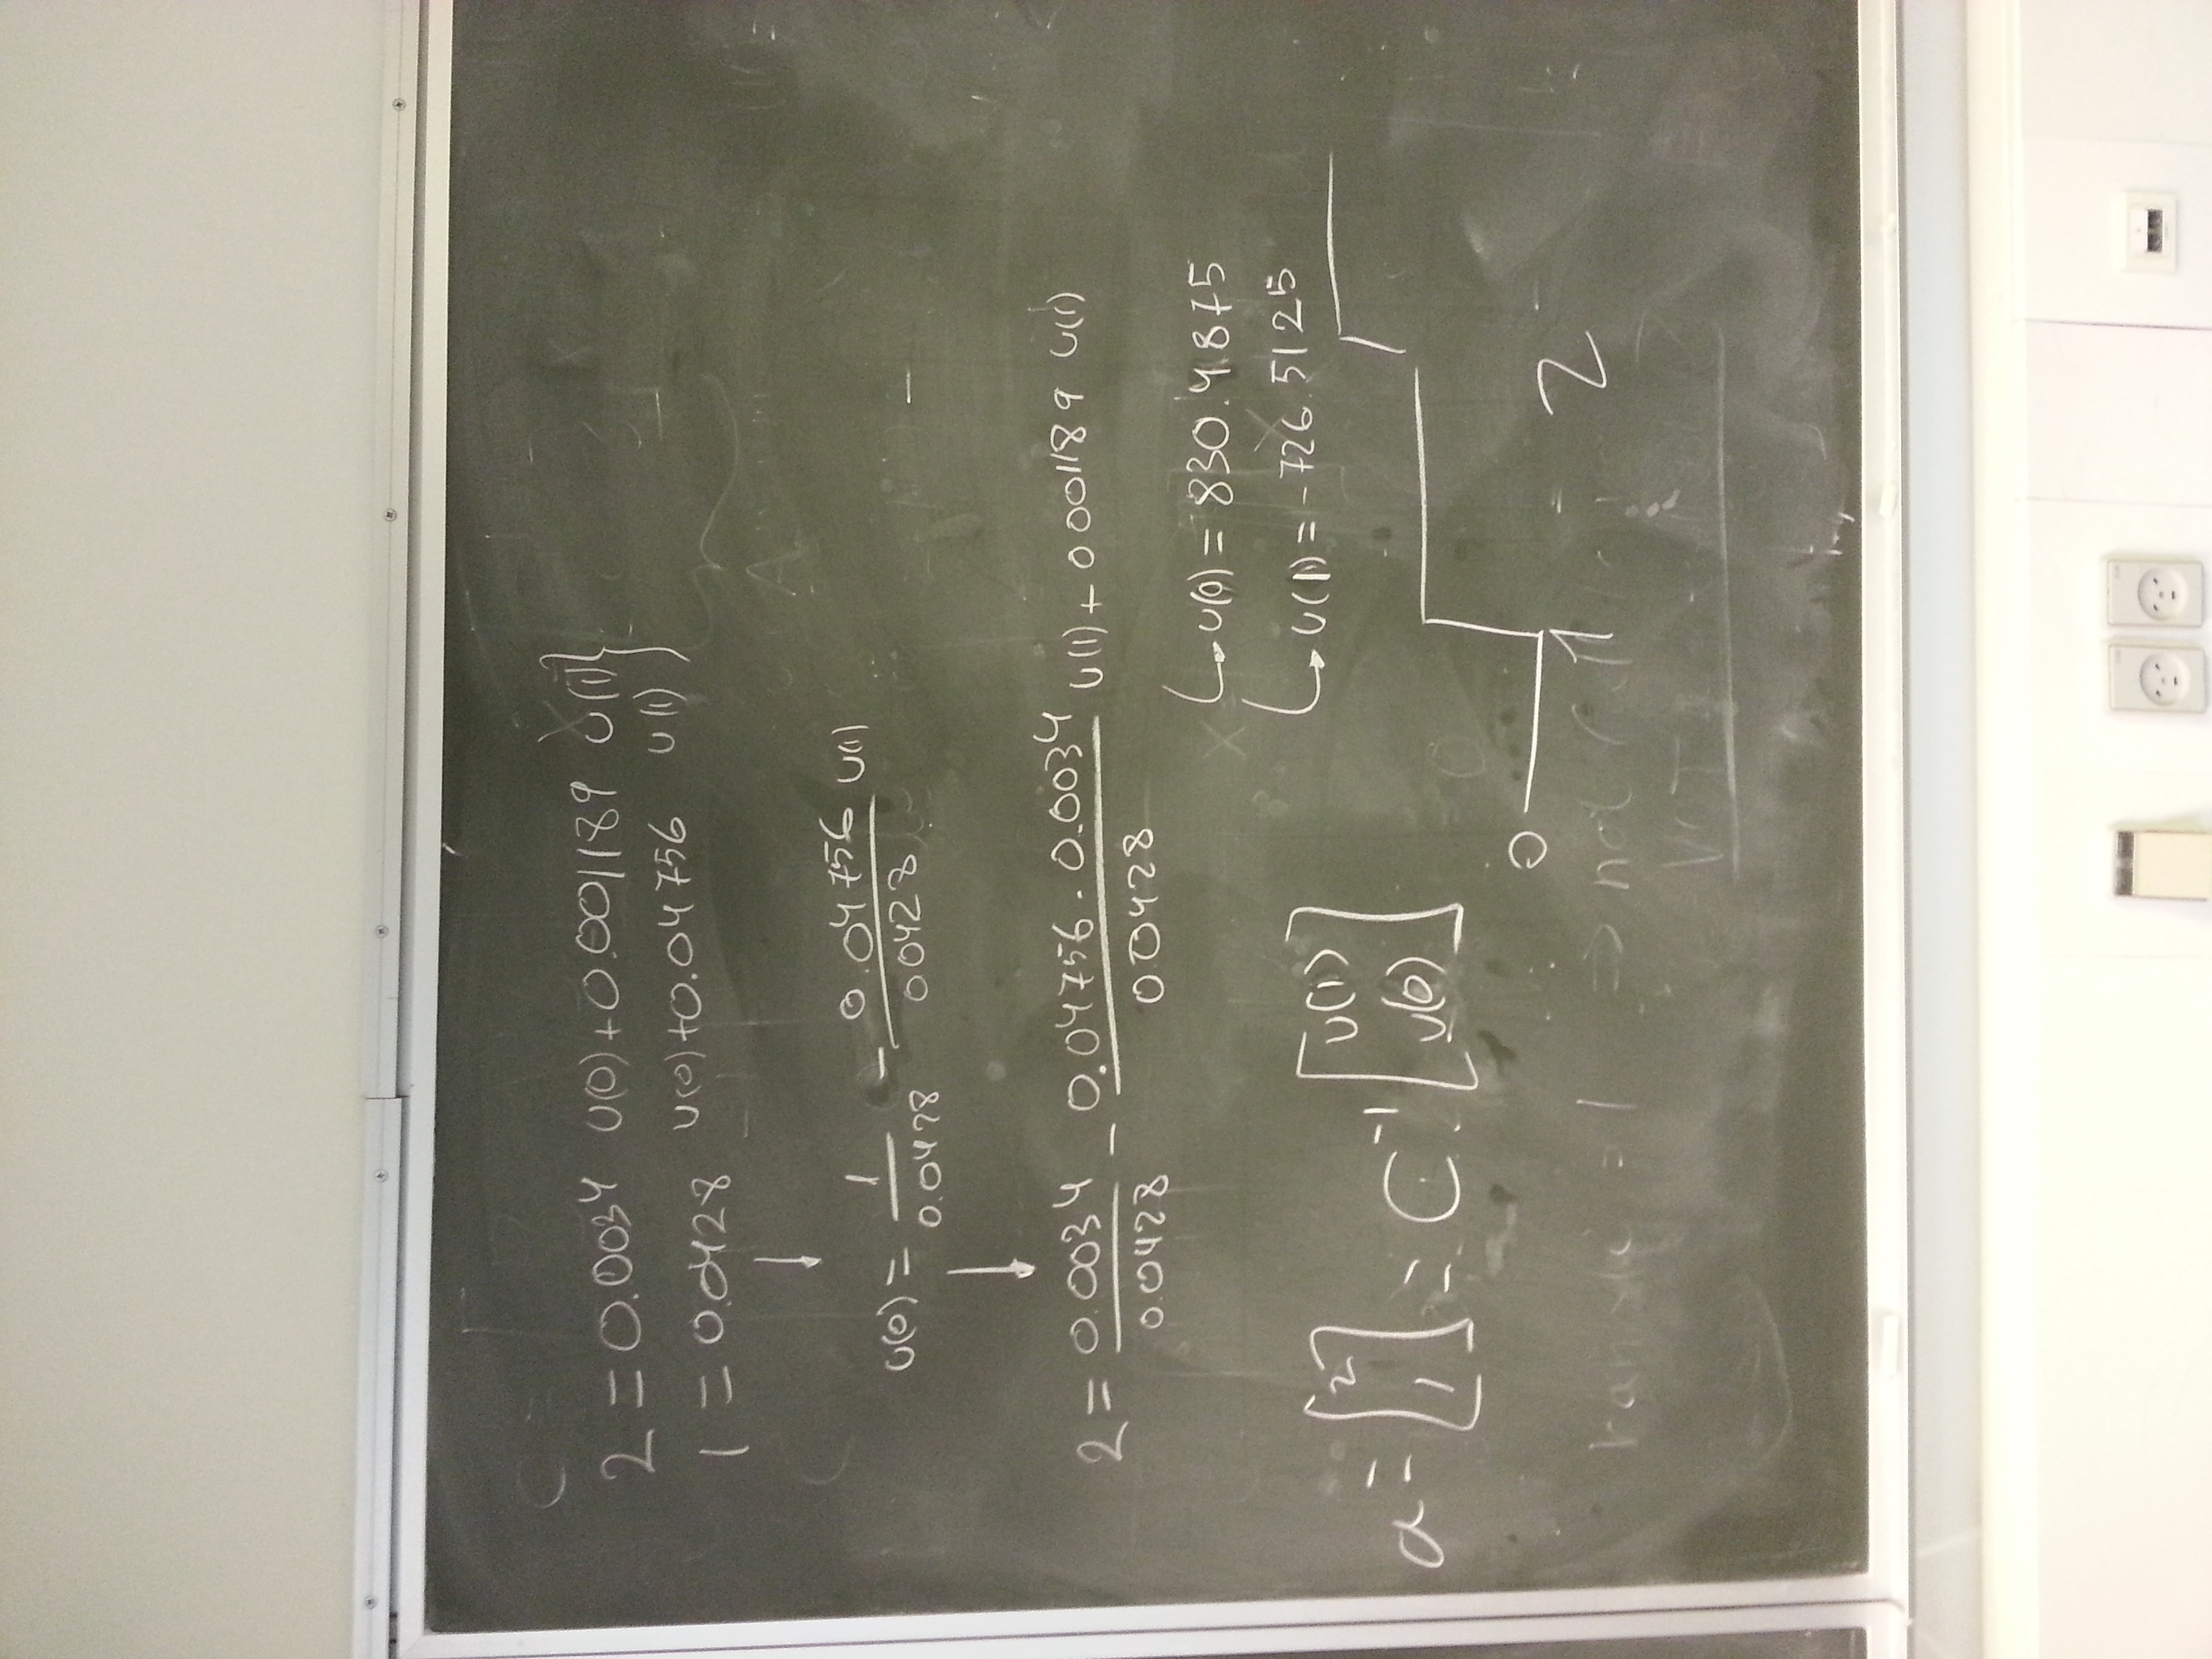 C =
2 = 0.0034 u(0) + 0.001189 u(1)
1 = 0.0428 u(0) + 0.04756 u(1)
u(0) = 1/0.0428 - 0.04756/0.0428 u(1)
2 = 0.0034/0.0428 - 0.04756 · 0.0034/0.0428 u(1) + 0.001189 u(1)
u(0) = 830.4875
u(1) = -726.5125
a = [2 1] = C^-1 [u(1) u(0)]
0 1 2
= 1 ⇒ not full